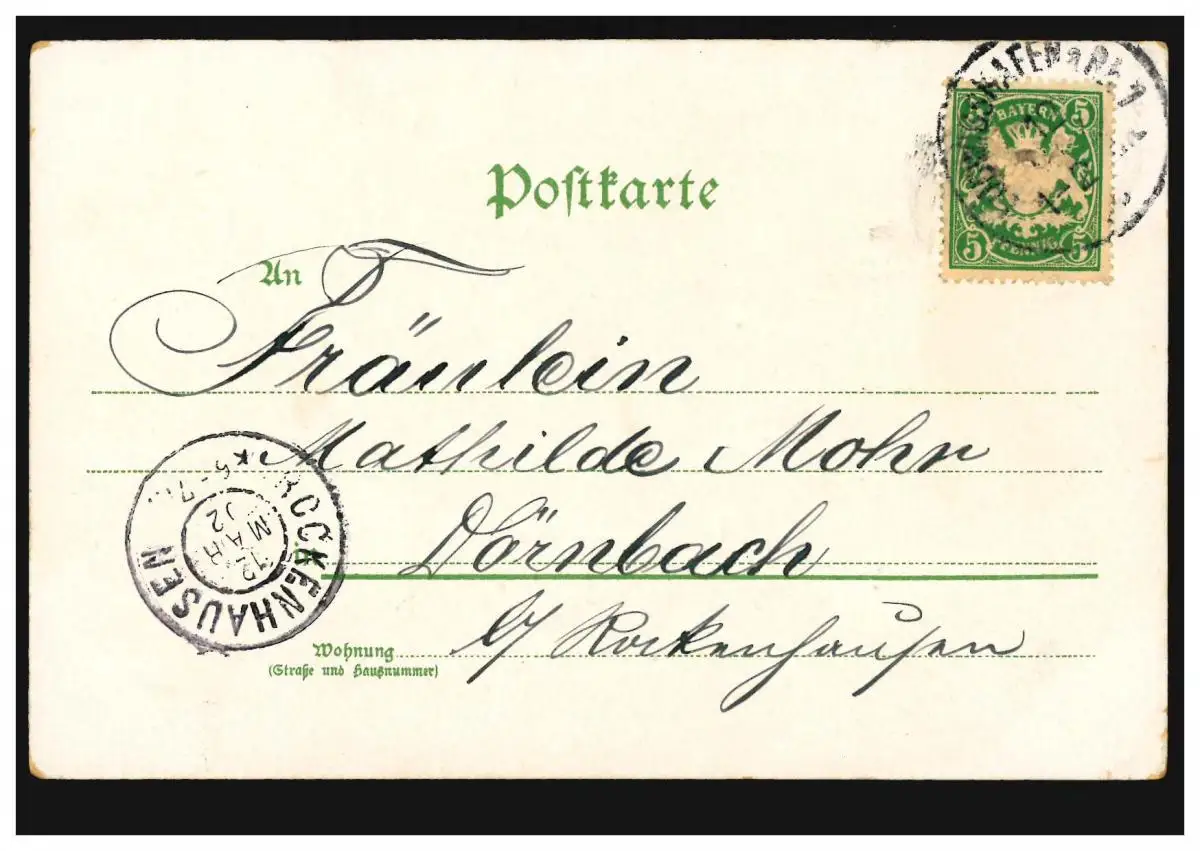 Postkarte
BAYERN
5 5
5 PFENNIG 5
An
Fräulein
Mathilde Mohr
Dörnbach
b/ Rockenhausen
Wohnung
(Straße und Hausnummer)
ROCKENHAUSEN
12
MAR
02